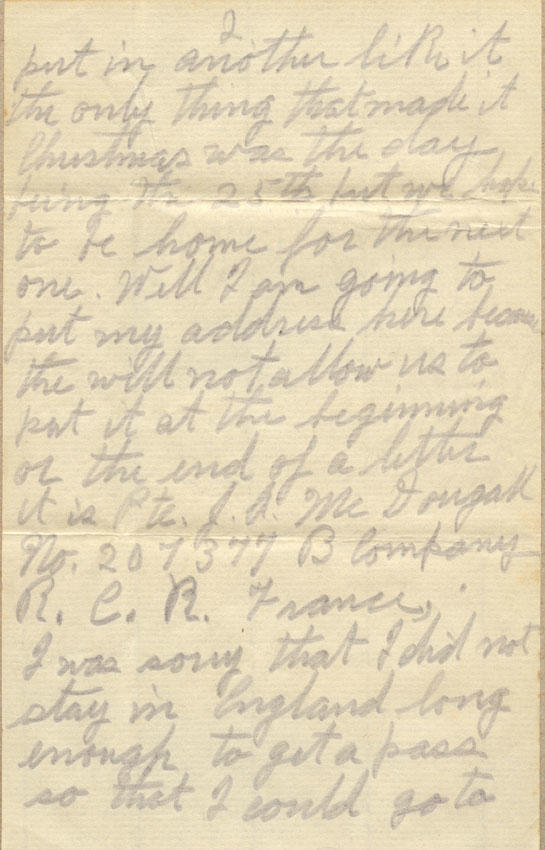 2
put in another like it
the only thing that made it
Christmas was the day
being the 25th but we hope
to be home for the next
one. Well I am going to
put my address here because
the will not allow us to
put it at the beginning
or the end of a letter
it is Pte. J. A. Mc Dougall
No. 207377 B Company
R. C. R. France,
I was sorry that I did not
stay in England long
enough to get a pass
so that I could go to